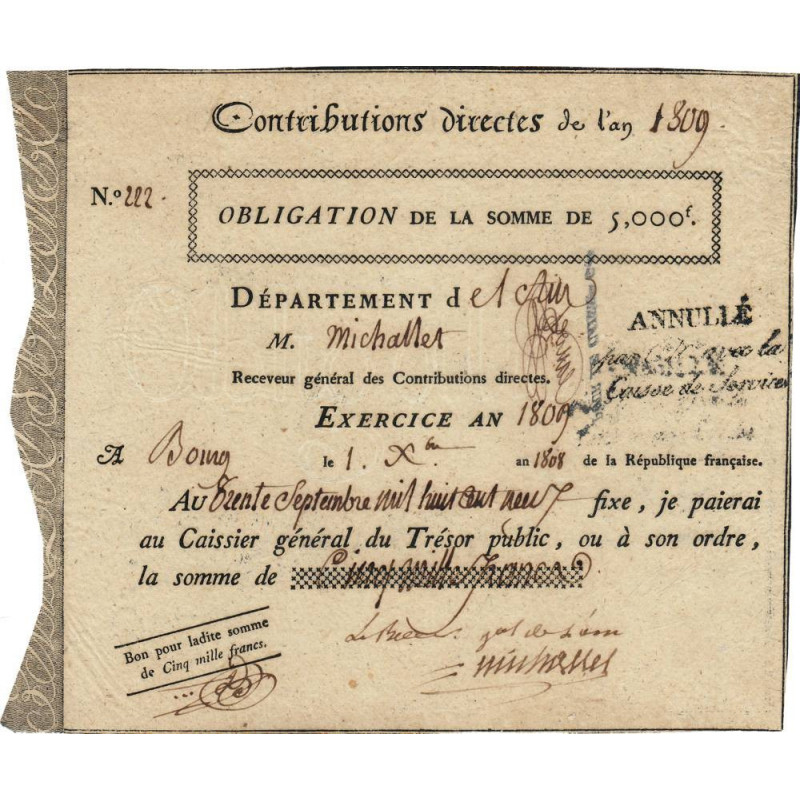 Contributions directes de l'an 1809.
N.º 222.
OBLIGATION DE LA SOMME DE 5,000f.
DÉPARTEMENT de l'Ain
M. Michallet
Receveur général des Contributions directes.
ANNULLÉ
par la
Caisse de Service
EXERCICE AN 1809
A Bourg le 1. Xbre an 1808 de la République française.
AU trente Septembre mil huit cent neuf fixe, je paierai
au Caissier général du Trésor public, ou à son ordre,
la somme de Cinq mille francs
Bon pour ladite somme
de Cinq mille francs.
Le Rec gal de l'ain
Michallet